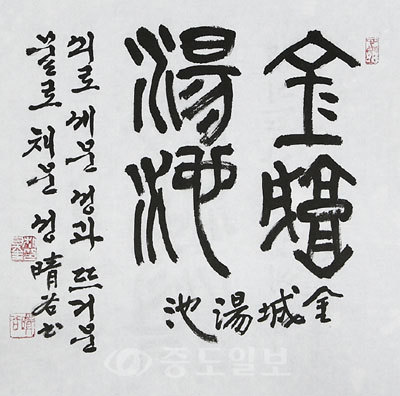 金城
湯池
金城湯池
쇠로 세운 성과 뜨거운
물로 채운 성 晴谷书
중도일보